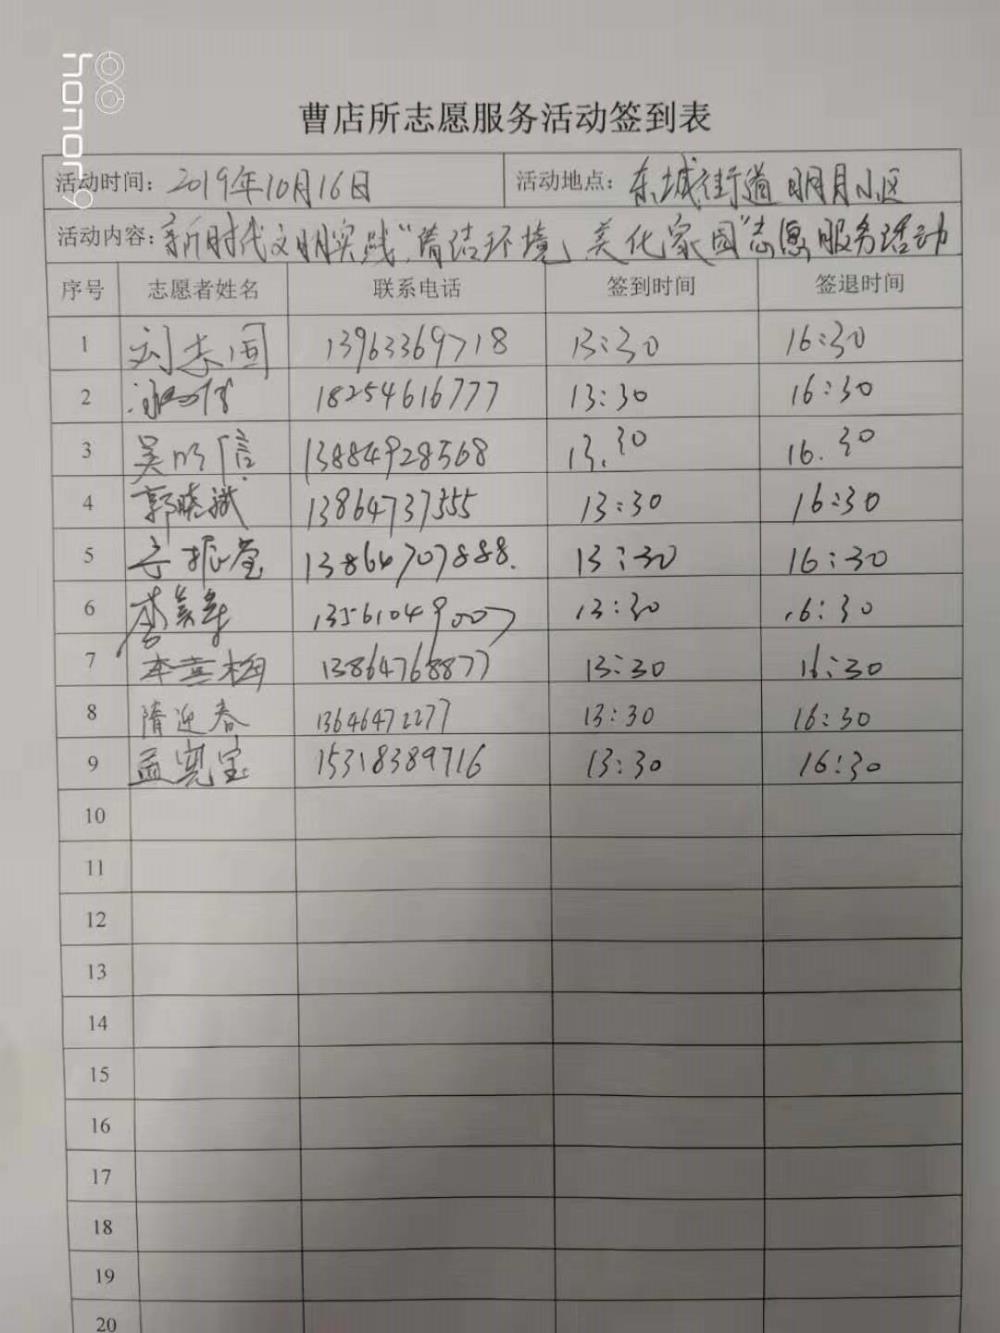 honor 9
曹店所志愿服务活动签到表
活动时间：2019年10月16日 活动地点：东城街道明月小区
活动内容：新时代文明实践“清洁环境、美化家园”志愿服务活动
序号 志愿者姓名 联系电话 签到时间 签退时间
1 刘志国 13963369718 13:30 16:30
2 18254616777 13:30 16:30
3 吴明信 13884928568 13.30 16.30
4 郭晓斌 13864737555 13:30 16:30
5 13864707888. 13:30 16:30
6 李 13561049007 13:30 16:30
7 13864768877 13:30 16:30
8 隋迎春 13646472277 13:30 16:30
9 孟宪宝 15318389716 13:30 16:30
10
11
12
13
14
15
16
17
18
19
20